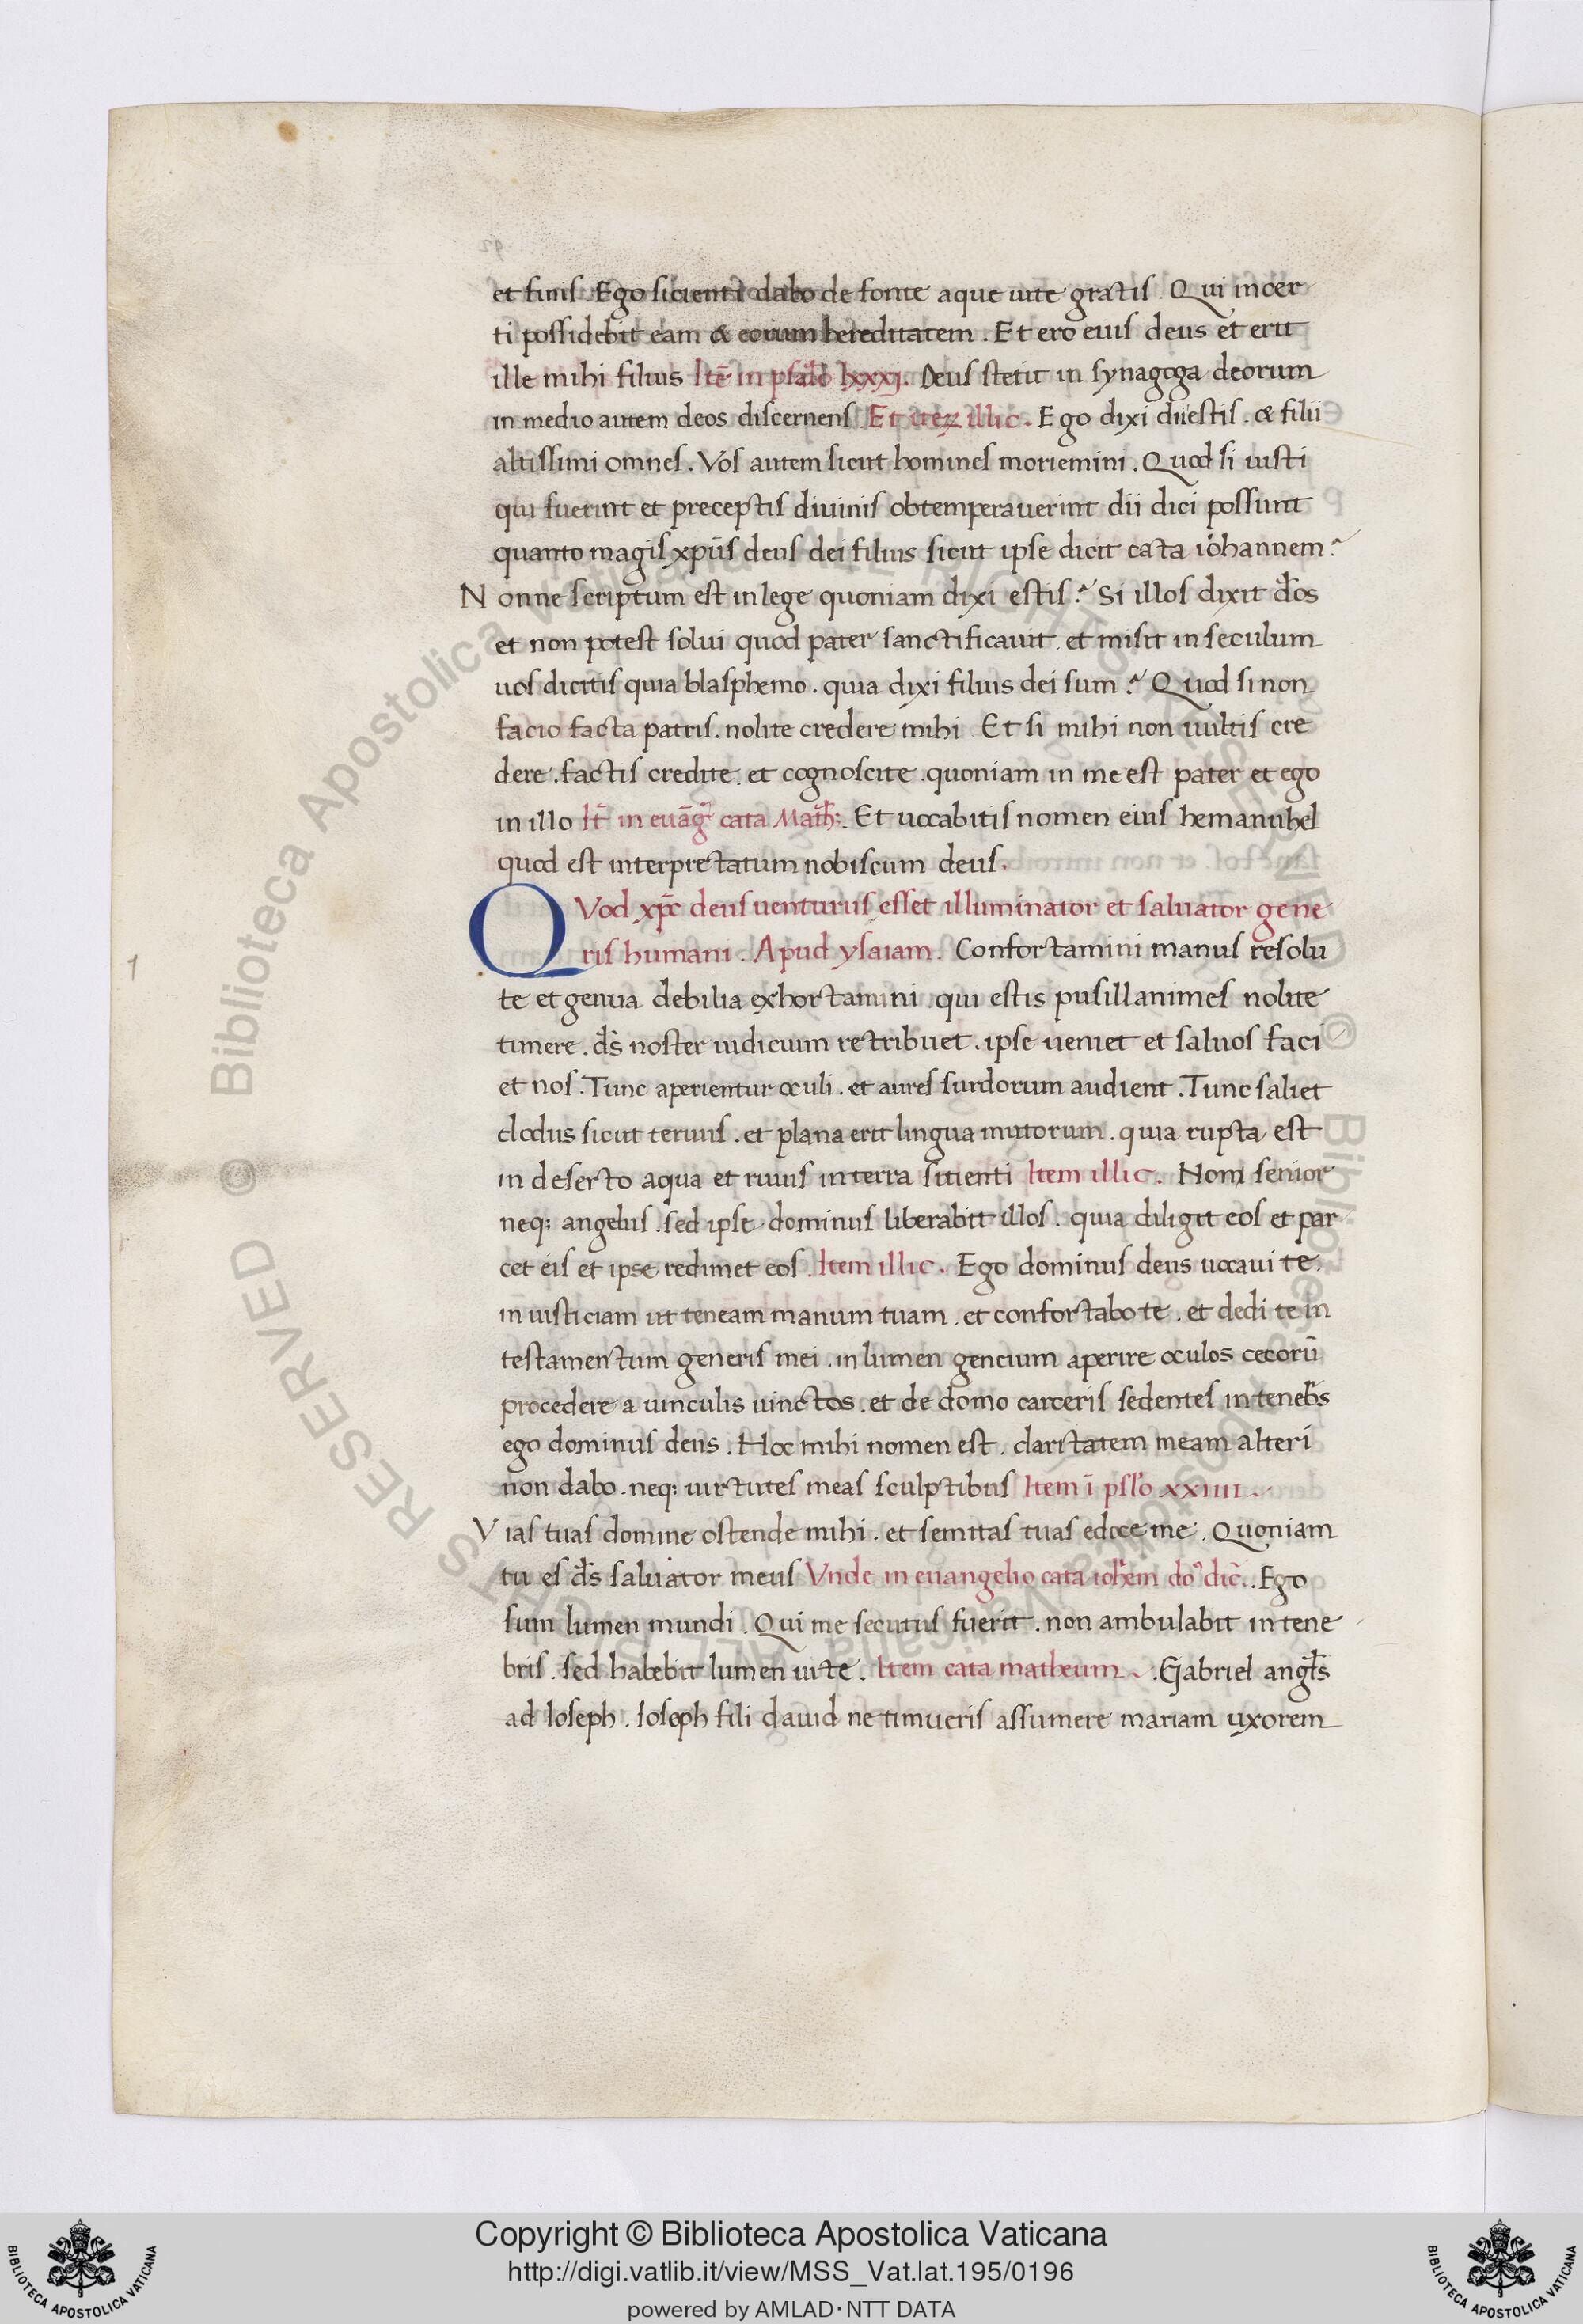 et finis. Ego sicienti dabo de fonte aque uite gratis. Qui incer
ti possidebit eam & eorum hereditatem. Et ero eius deus et erit
ille mihi filius Itē in psal̄o lxxxj. Deus stetit in synagoga deorum
in medio autem deos discernens. Et iteꝝ illic. Ego dixi dii estis. & filii
altissimi omnes. Vos autem sicut homines moriemini. Quod si iusti
qui fuerint et preceptis diuinis obtemperauerint dii dici possunt
quanto magis xpūs deus dei filius sicut ipse dicit cata iohannem?
Nonne scriptum est in lege quoniam dixi estis? Si illos dixit d̄os
et non potest solui quod pater sanctificauit. et misit in seculum
uos dicitis quia blasphemo. quia dixi filius dei sum? Quod si non
facio facta patris. nolite credere mihi. Et si mihi non uultis cre
dere. factis credite. et cognoscite. quoniam in me est pater et ego
in illo It̄ in euāḡ cata Math̄:. Et uocabitis nomen eius hemanuhel
quod est interpretatum nobiscum deus.
QVod xp̄c deus uenturus esset illuminator et saluator gene
ris humani. Apud ysaiam. Confortamini manus resolu
te et genua debilia exhortamini. qui estis pusillanimes nolite
timere. d̄s noster iudicium retribuet. ipse ueniet et saluos faci
et nos. Tunc aperientur oculi. et aures surdorum audient. Tunc saliet
clodus sicut ceruus. et plana erit lingua mutorum. quia rupta est
in deserto aqua et riuus in terra sitienti Item illic. Nom senior
neq; angelus. sed ipse dominus liberabit illos. quia diligit eos et par
cet eis et ipse redimet eos. Item illic. Ego dominus deus uocaui te.
in iusticiam ut teneam manum tuam. et confortabo te. et dedi te in
testamentum generis mei. in lumen gencium aperire oculos cecorū
procedere a uinculis uinctos. et de domo carceris sedentes in teneb̄s
ego dominus deus. Hoc mihi nomen est. claritatem meam alteri
non dabo. neq; uirtutes meas sculptibus Item ī psl̄o xxiiii.
Vias tuas domine ostende mihi. et semitas tuas edoce me. Quoniam
tu es d̄s saluator meus Vnde in euangelio cata ioh̄em do° dic̄. Ego
sum lumen mundi. Qui me secutus fuerit. non ambulabit in tene
bris. sed habebit lumen uite. Item cata matheum. Gabriel angl̄s
ad Ioseph. Ioseph fili dauid ne timueris assumere mariam uxorem
1
Copyright © Biblioteca Apostolica Vaticana
http://digi.vatlib.it/view/MSS_Vat.lat.195/0196
powered by AMLAD·NTT DATA
BIBLIOTECA APOSTOLICA VATICANA
BIBLIOTECA APOSTOLICA VATICANA